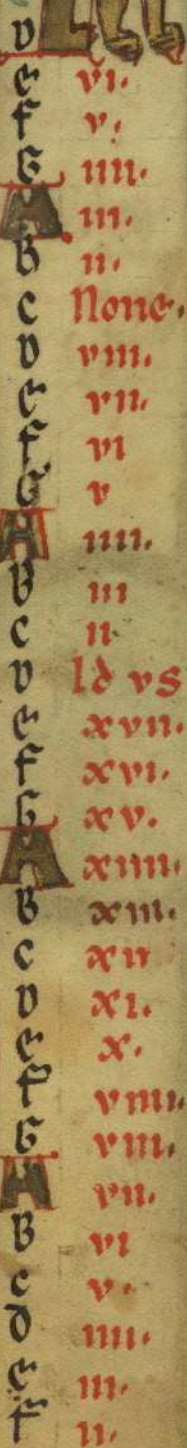 D
e vi.
f v.
G iiii.
A iii.
B ii.
c None.
D viii.
e vii.
f vi
G v
A iiii.
B iii
c ii
D Id vs
e xvii.
f xvi.
G xv.
A xiiii.
B xiii.
c xii
D xi.
e x.
f viiii.
G viii.
A vii.
B vi
c v.
d iiii.
e iii.
f ii.